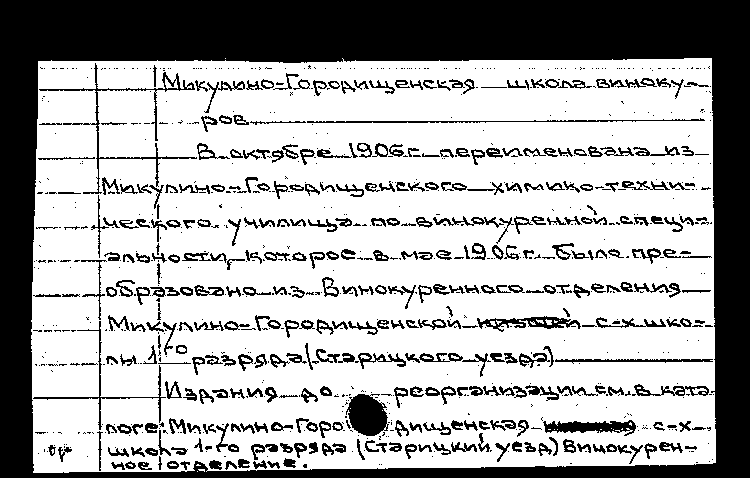 Микулино-Городищенская школа виноку-
ров
В октябре 1906г. переименована из
Микулино-Городищенского химико-техни-
ческого училища по винокуренной специ-
альности, которое в мае 1906г. было пре-
образовано из Винокуренного отделения
Микулино-Городищенской с-х шко-
лы 1го разряда (Старицкого уезда)
Издания до реорганизации см. в ката
логе: Микулино-Горо дищенская с-х-
школа 1-го разряда (Старицкий уезд) Винокурен-
ное отделение.